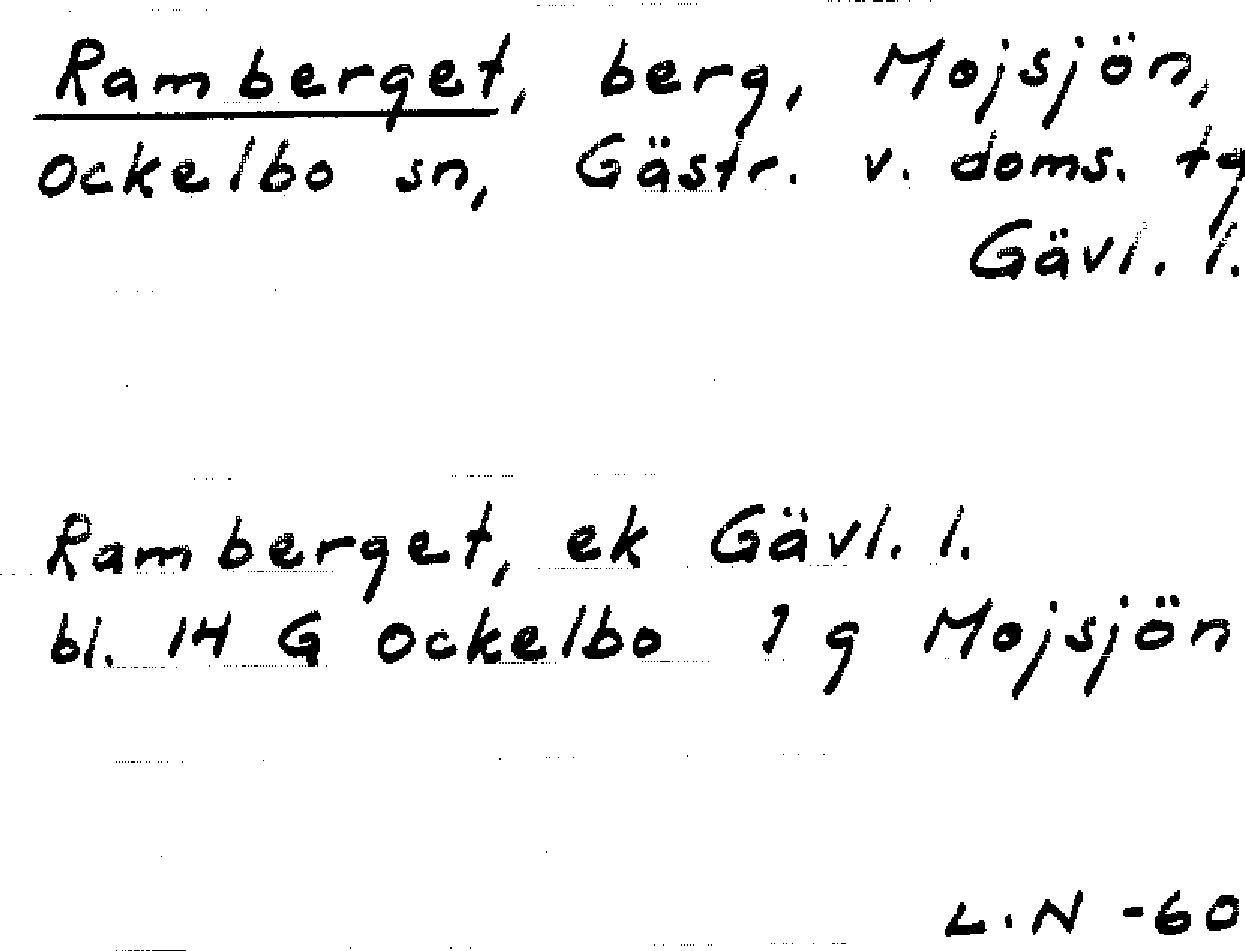 Ramberget, berg, Mojsjön,
Ockelbo sn, Gästr. v. doms. tg
Gävl. l.
Ramberget, ek Gävl. l.
bl. 14 G Ockelbo 1 g Mojsjön
L.N -60